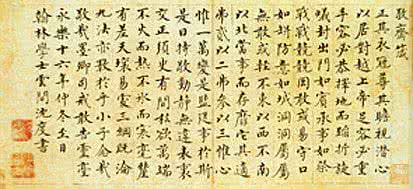 敬齋箴
正其衣冠尊其瞻視潛心
以居對越上帝足容必重
手容必恭擇地而蹈折旋
蟻封出門如賓承事如祭
戰戰兢兢罔敢或易守口
如瓶防意如城洞洞屬屬
無敢或輕不東以西不南
以北當事而存靡它其適
弗貳以二弗參以三惟心
惟一萬變是監從事於斯
是曰持敬動靜無違表裏
交正須臾有間私欲萬端
不火而熱不冰而寒毫釐
有差天壤易處三綱既淪
九法亦斁於乎小子念哉
敬哉墨卿司戒敢告靈臺
永樂十六年仲冬至日
翰林學士雲間沈度書